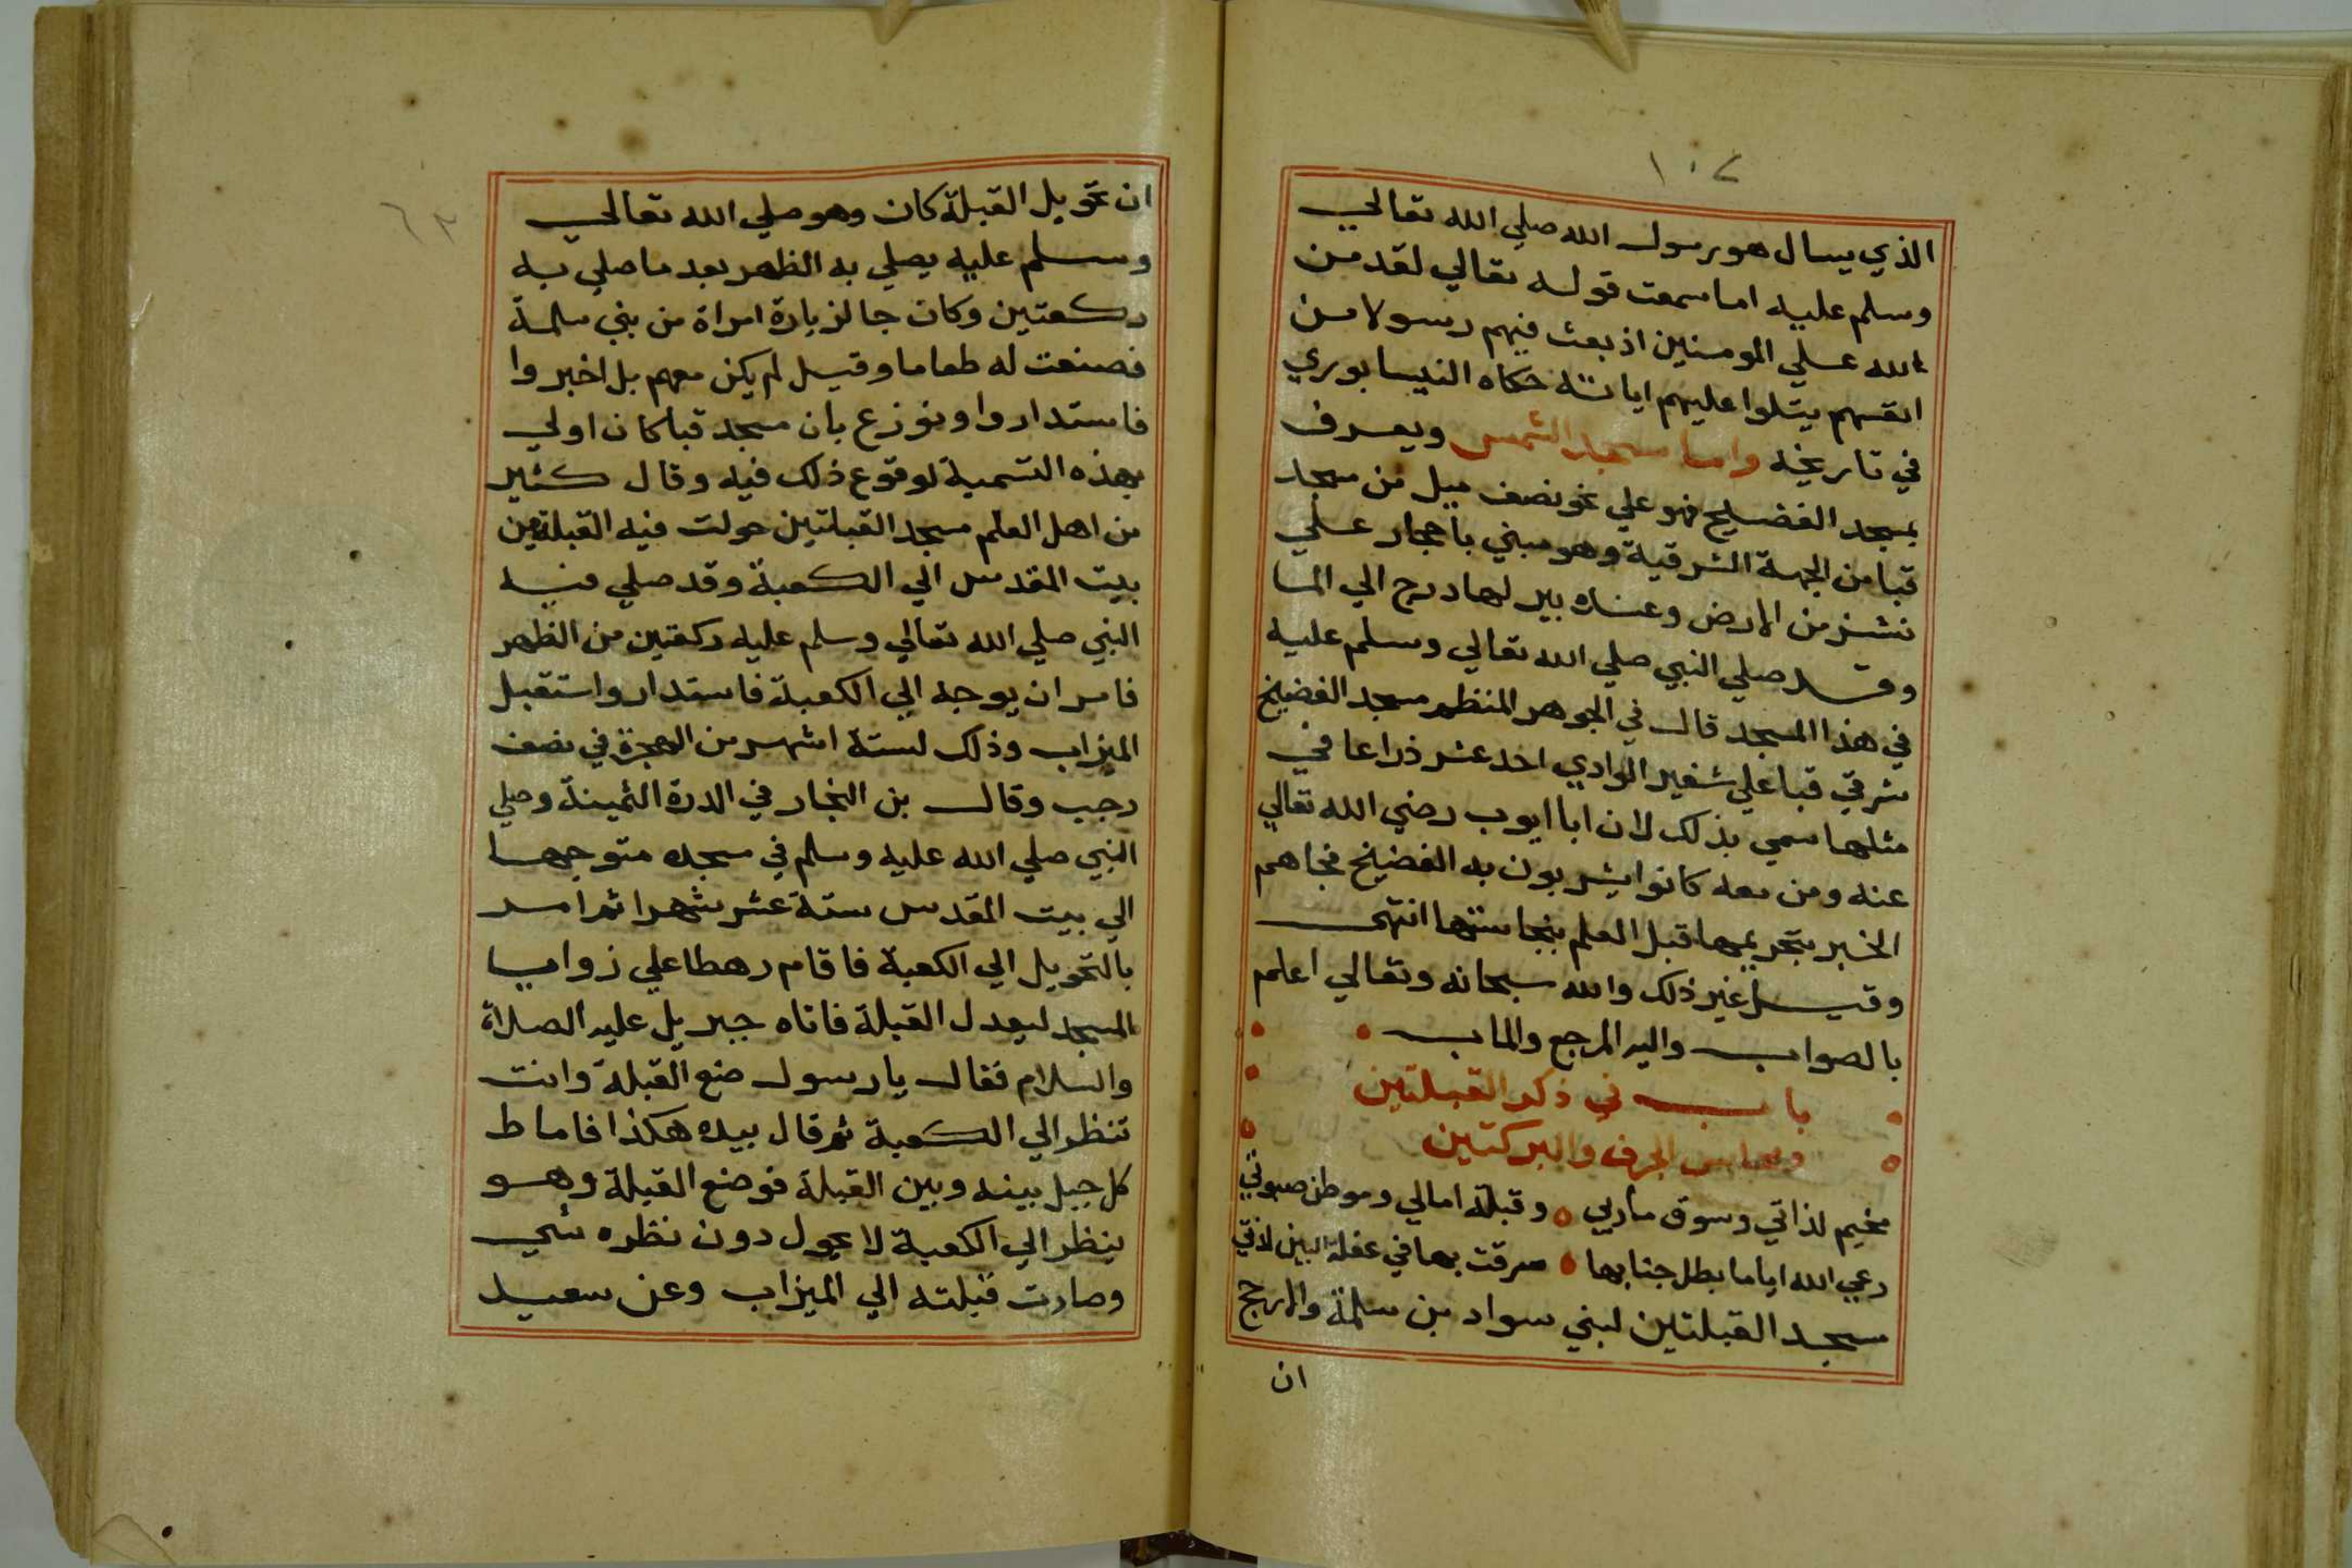 ١٠٧
الذي يسال هو رسول الله صلي الله تعالي
وسلم عليه اما سمعت قوله تعالي لقد من
الله علي المومنين اذ بعث فيهم رسولا من
انفسهم يتلوا عليهم اياته حكاه النيسابوري
في تاريخه واما مسجد الشمس ويعرف
بمسجد الفضيخ فهو علي نحو نصف ميل من مسجد
قبا من الجهة الشرقية وهو مبني باحجار علي
نشز من الارض وعنده بير لها درج الي الما
وقد صلي النبي صلي الله تعالي وسلم عليه
في هذا المسجد قال في الجوهر المنظم مسجد الفضيخ
شرقي قبا علي شفير الوادي احد عشر ذراعا في
مثلها سمي بذلك لان ابا ايوب رضي الله تعالي
عنه ومن معه كانوا يشربون به الفضيخ فجاهم
الخبر بتحريمها قبل العلم بنجاستها انتهي
وقيل غير ذلك والله سبحانه وتعالي اعلم
بالصواب واليه المرجع والماب
باب في ذكر القبلتين
ومحاسن الجرف والبركتين
مخيم لذاتي وسوق ماربي وقبلة امالي وموطن صبوتي
رعي الله اياما بظل جنابها سرقت بها في غفلة البين لذتي
مسجد القبلتين لبني سواد بن سلمة والارجح
ان
٦٣
ان تحويل القبلة كان وهو صلي الله تعالي
وسلم عليه يصلي به الظهر بعد ما صلي به
ركعتين وكان جا لزيارة امراة من بني سلمة
فصنعت له طعاما وقيل لم يكن معهم بل اخبروا
فاستداروا ونوزع بان مسجد قبا كان اولي
بهذه التسمية لوقوع ذلك فيه وقال كثير
من اهل العلم مسجد القبلتين حولت فيه القبلة من
بيت المقدس الي الكعبة وقد صلي فيه
النبي صلي الله تعالي وسلم عليه ركعتين من الظهر
فامر ان يوجه الي الكعبة فاستدار واستقبل
الميزاب وذلك لستة اشهر من الهجرة في نصف
رجب وقال بن النجار في الدرة الثمينة وصلي
النبي صلي الله عليه وسلم في مسجده متوجها
الي بيت المقدس ستة عشر شهرا ثم امر
بالتحويل الي الكعبة فاقام رهطا علي زوايا
المسجد ليعدل القبلة فاتاه جبريل عليه الصلاة
والسلام فقال يا رسول ضع القبلة وانت
تنظر الي الكعبة ثم قال بيده هكذا فاماط
كل جبل بينه وبين القبلة فوضع القبلة وهو
ينظر الي الكعبة لا يحول دون نظره شي
وصارت قبلته الي الميزاب وعن سعيد